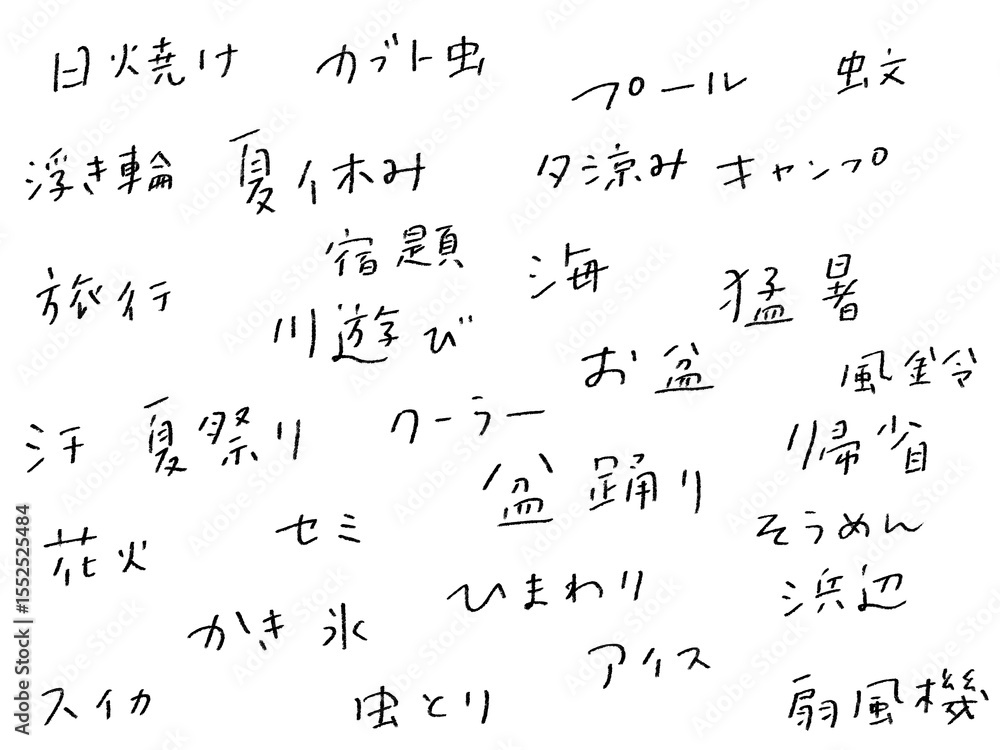 日焼け カブト虫
プール 蚊
浮き輪 夏休み 夕涼み キャンプ
宿題 海 猛暑
旅行 川遊び
お盆 風鈴
汗 夏祭り クーラー 帰省
盆踊り
花火 セミ そうめん
ひまわり 浜辺
かき氷 アイス
スイカ 虫とり 扇風機
Adobe Stock | #1552525484